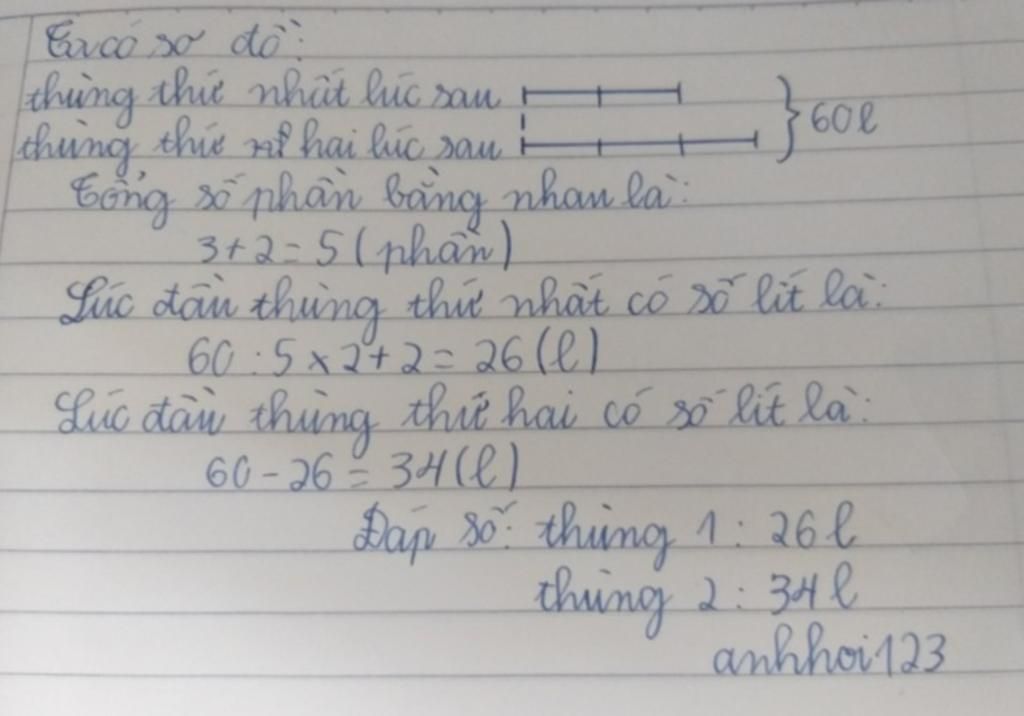 Ta có sơ đồ:
thùng thứ nhất lúc sau
60l
thùng thứ hai lúc sau
Tổng số phần bằng nhau là:
3+2=5 (phần)
Lúc đầu thùng thứ nhất có số lít là:
60 : 5 x 2 + 2 = 26 (l)
Lúc đầu thùng thứ hai có số lít là:
60 - 26 = 34 (l)
Đáp số: thùng 1 : 26 l
thùng 2 : 34 l
anhhoi123